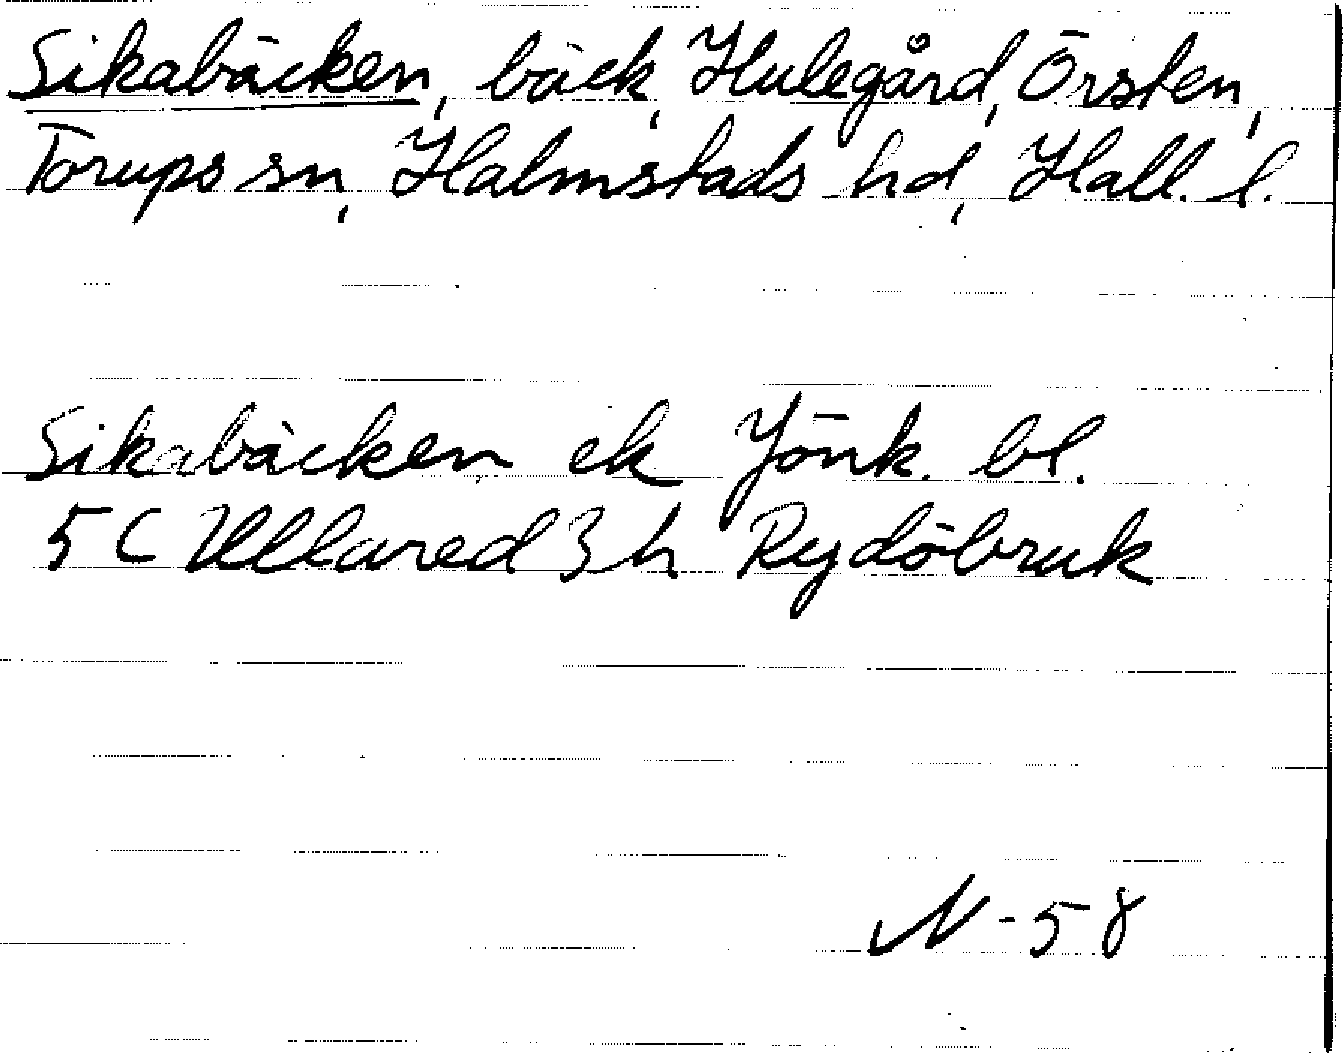 Sikabäcken, bäck, Hulegård, Örsten,
Torups sn, Halmstads hd, Hall. l.
Sikabäcken ek Jönk. bl.
5 C Ullared 3 h Rydöbruk
N-58